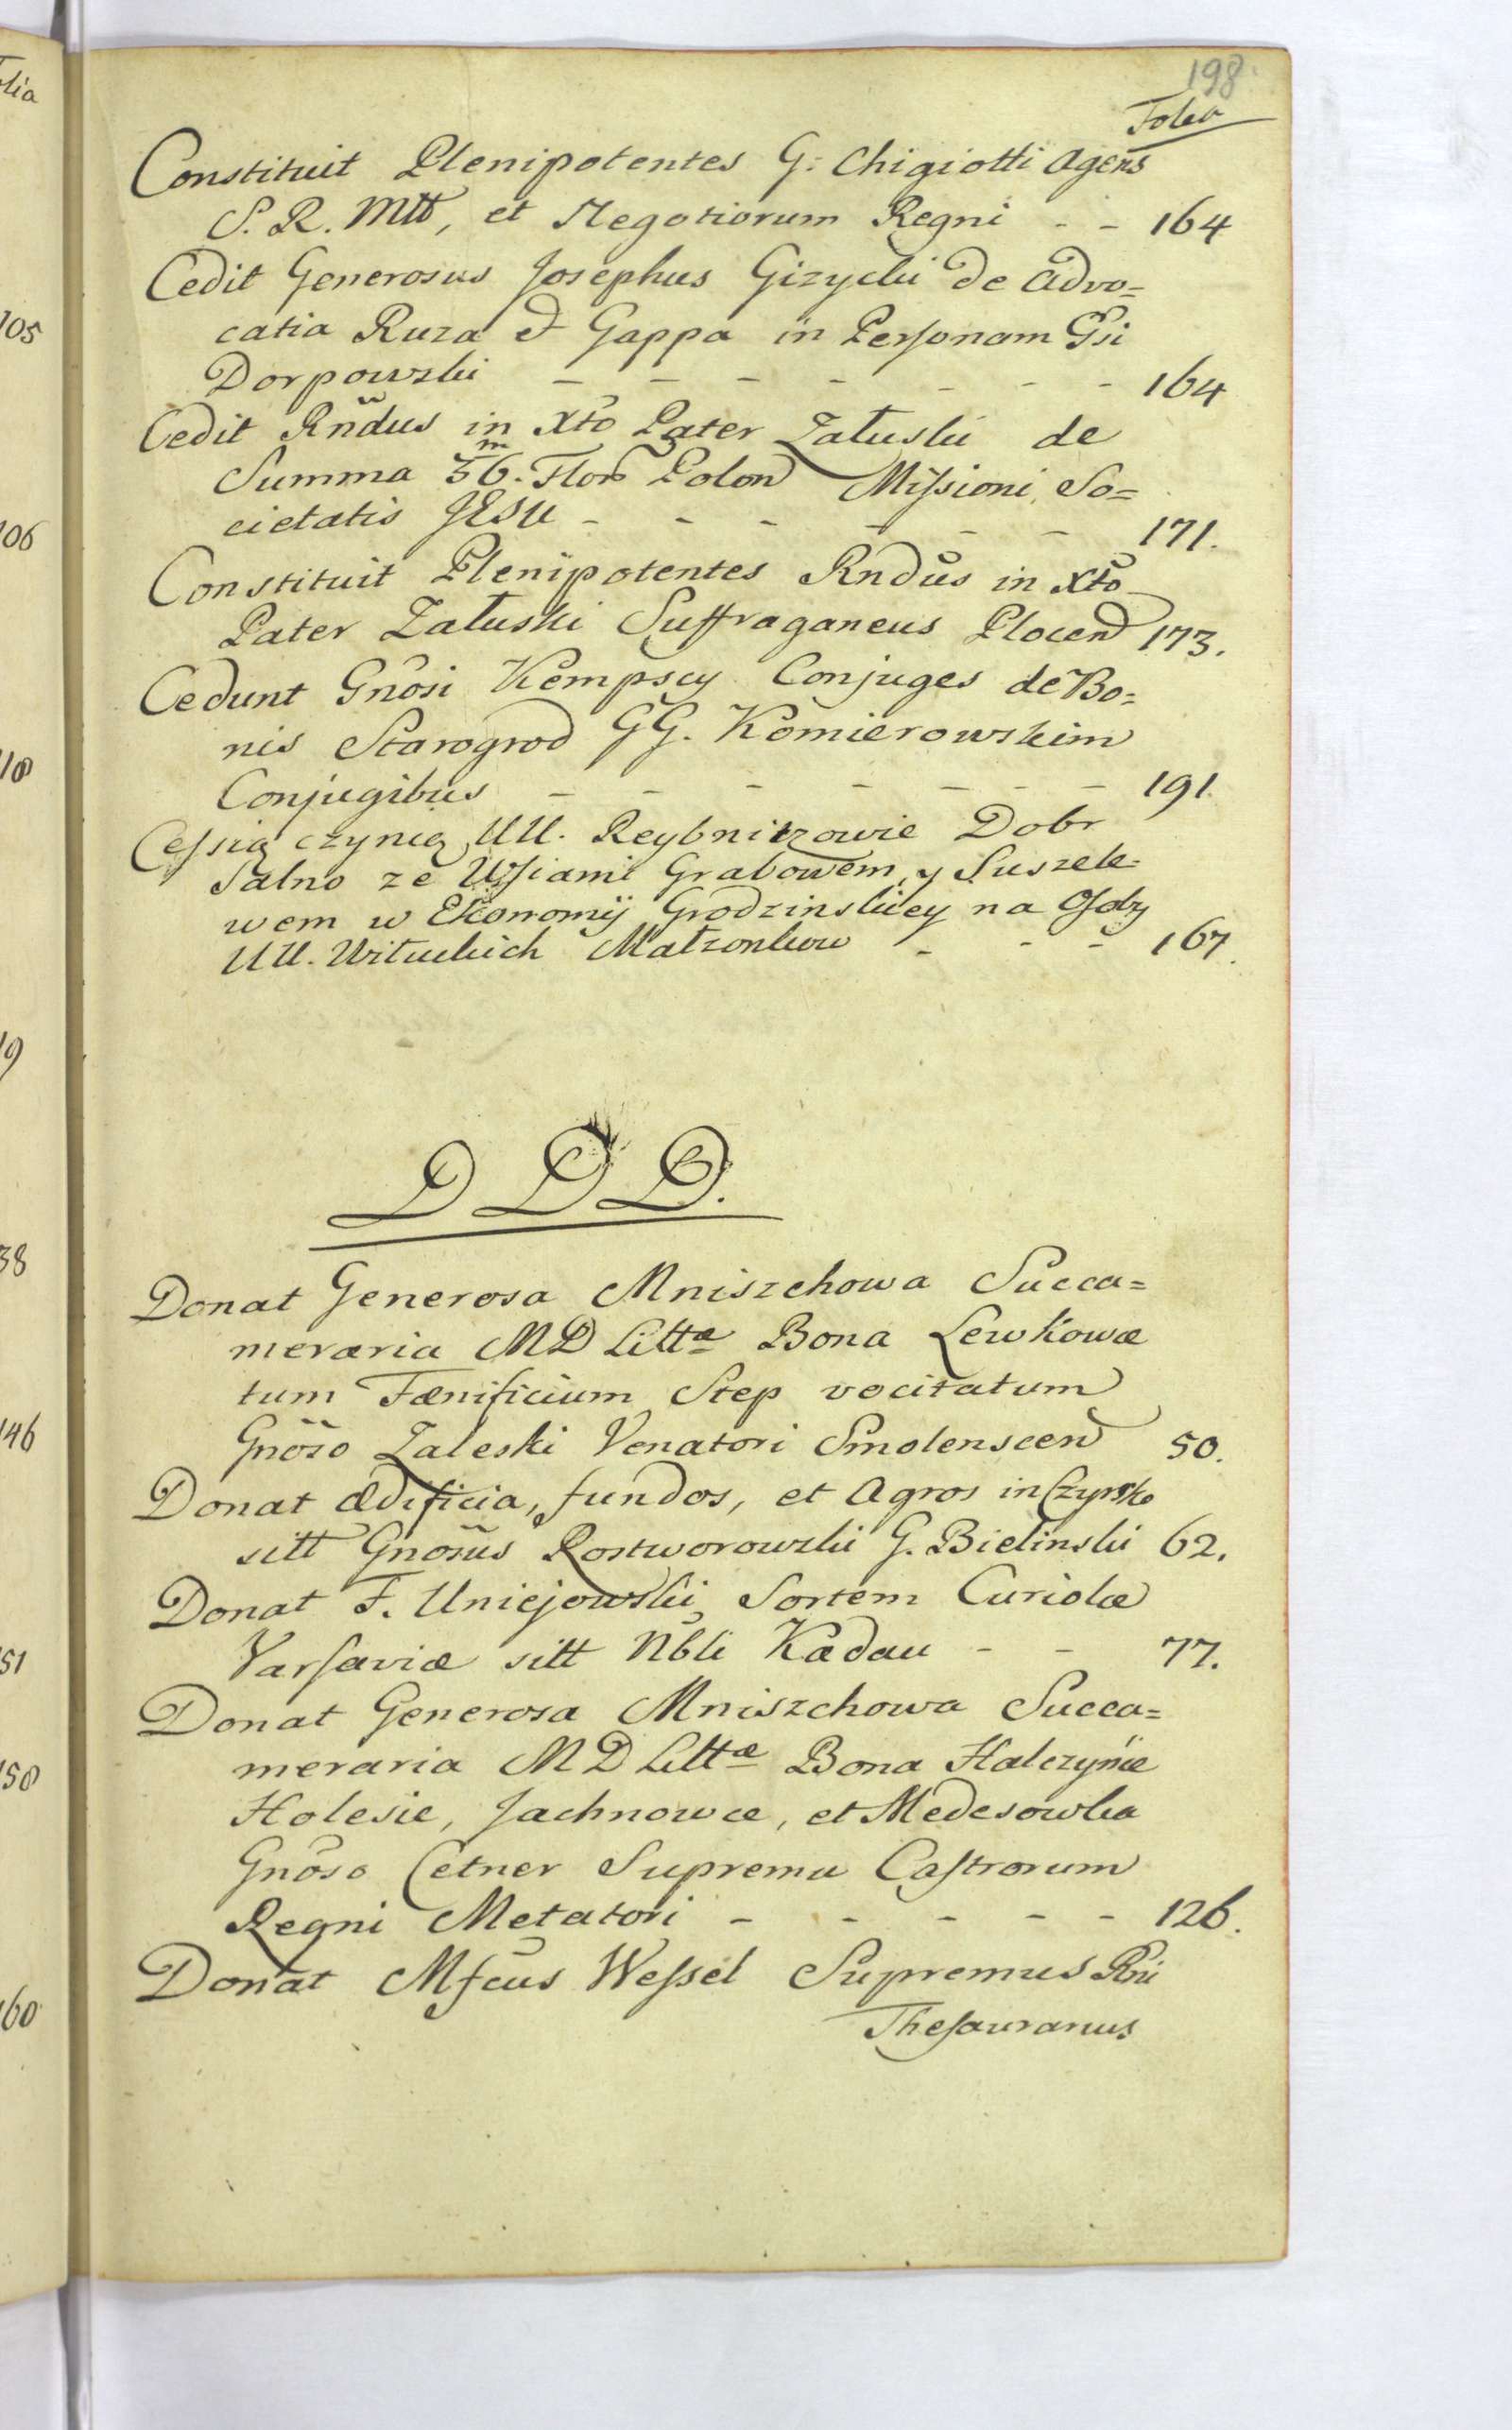 198.
Folia
Constituit Plenipotentes G: Chigiotti Agens
S. R. Mtt, et Negotiorum Regni - - 164
Cedit Generosus Josephus Gizycki de Advo=
catia Ruza et Gappa in Personam Gsi
Dorpowski - - - - - - - 164
Cedit Rndus in Xto Pater Załuski de
Summa 36.m Flor Polon Missioni So=
cietatis JESU - - - - - - 171.
Constituit Plenipotentes Rndus in Xto
Pater Załuski Suffraganeus Plocen 173.
Cedunt Gnosi Kempscy Conjuges de Bo=
nis Starogrod GG. Komierowskim
Conjugibus - - - - - - - 191
Cessią czynią UU. Reybnizowie Dobr
Salno ze Wsiami Grabowem, y Suszele=
wem w Ekonomij Grodzinskiey na Osoby
UU. Wituckich Małzonkow - - - 167.
D D D.
Donat Generosa Mniszchowa Succa=
meraria MD Littæ Bona Lewkowæ
tum Fænificium Step vocitatum
Gnoso Zaleski Venatori Smolenscen 50.
Donat Ædificia, fundos, et Agros in Czyrsko
sitt Gnosus Rostworowski G. Bielinski 62.
Donat F. Uniejowski Sortem Curiolæ
Varsaviæ sitt Nbli Kadau - - 77.
Donat Generosa Mniszchowa Succa=
meraria MD Littæ Bona Halczynie
Holesie, Jachnowce, et Medesowka
Gnoso Cetner Supremu Castrorum
Regni Metatori - - - - - 126.
Donat Mfcus Wessel Supremus Rni
Thesaurarius
105
106
110
19
38
146
151
150
160